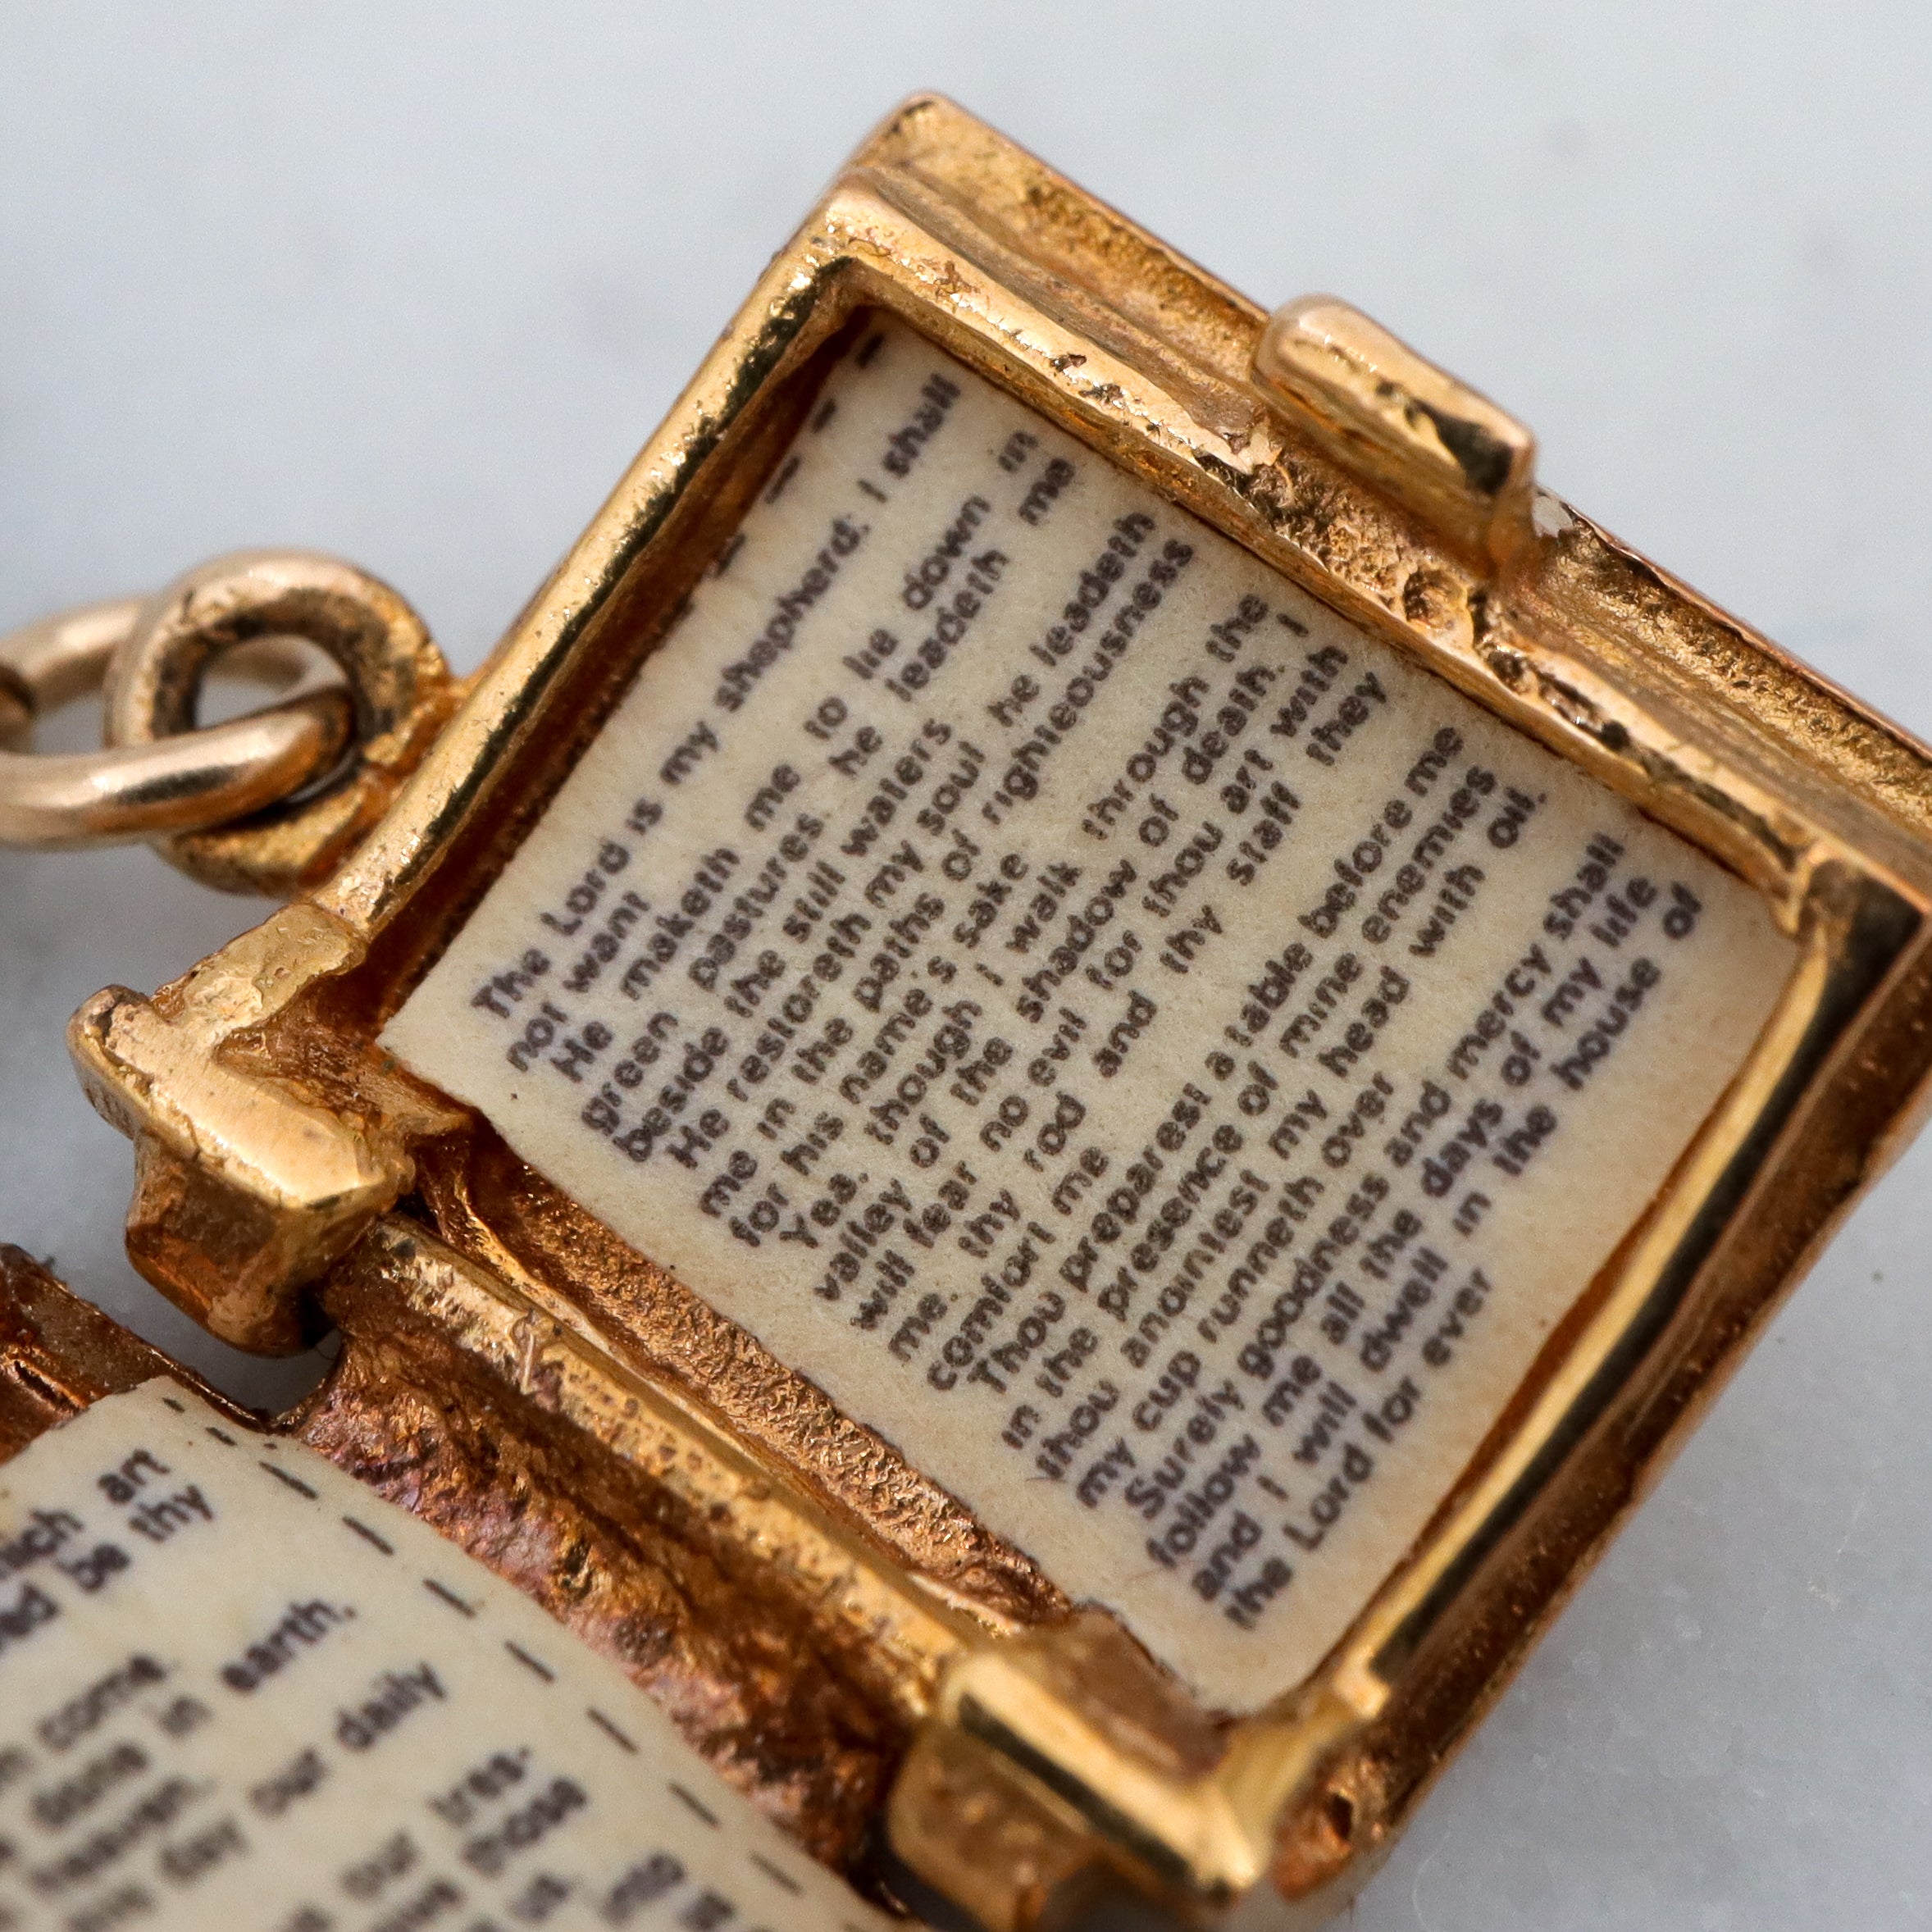 The Lord is my shepherd: I shall
not want
He maketh me to lie down in
green pastures. he leadeth me
beside the still waters
He restoreth my soul he leadeth
me in the paths of righteousness
for his name's sake
Yea, though I walk through the
valley of the shadow of death. I
will fear no evil for thou art with
me. thy rod and thy staff they
comfort me
Thou preparest a table before me
in the presence of mine enemies
thou anointest my head with oil.
my cup runneth over
Surely goodness and mercy shall
follow me all the days of my life
and I will dwell in the house of
the Lord for ever
art
be thy
come.
done in earth.
day our daily